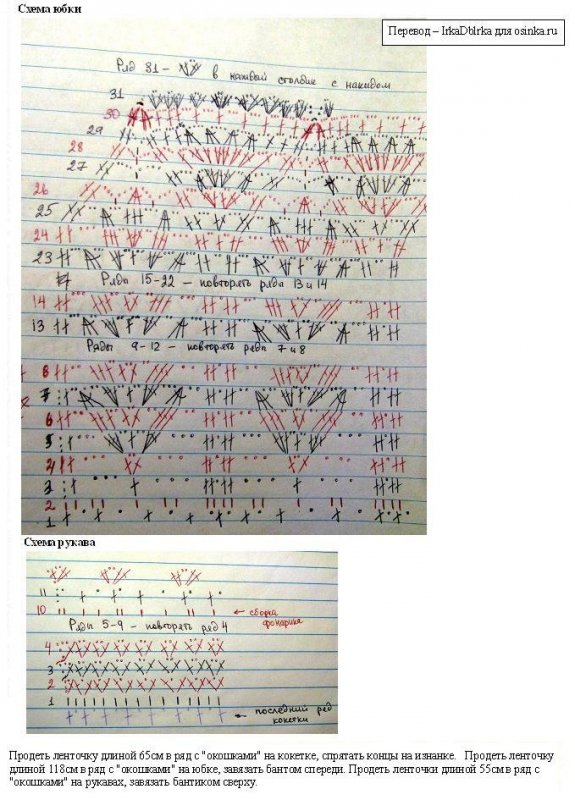 Схема юбки
Перевод – IrkaDbIrka для osinka.ru
Ряд 31 – в каждый столбик с накидом
31
30
29
28
27
26
25
24
23
Ряды 15-22 – повторять ряда 13 и 14
14
13
Ряды 9-12 – повторять ряда 7 и 8
8
7
6
5
4
3
2
1
Схема рукава
11
10
← сборка фонарика
Ряды 5-9 – повторять ряд 4
4
3
2
1
← последний ряд кокетки
Продеть ленточку длиной 65см в ряд с "окошками" на кокетке, спрятать концы на изнанке. Продеть ленточку
длиной 118см в ряд с "окошками" на юбке, завязать бантом спереди. Продеть ленточки длиной 55см в ряд с
"окошками" на рукавах, завязать бантиком сверху.